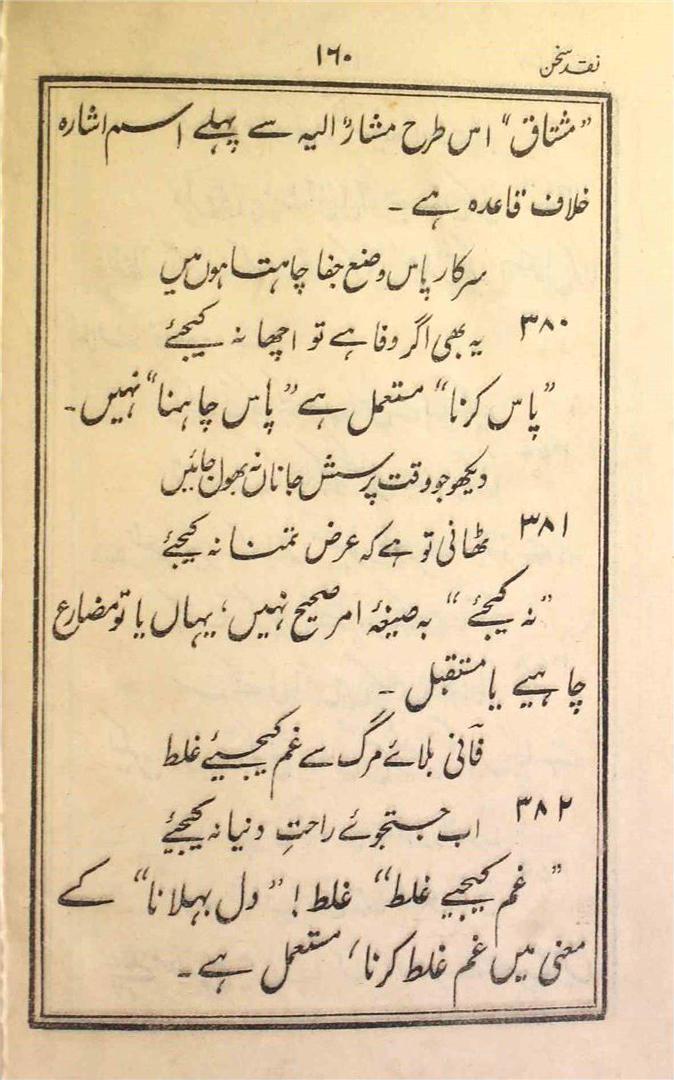 نقد سخن
۱۶۰
”مشتاق“ اس طرح مشارٌ الیہ سے پہلے اسم اشارہ
خلاف قاعدہ ہے ۔
سرکار پاس وضع جفا چاہتا ہوں میں
۳۸۰
یہ بھی اگر وفا ہے تو اچھا نہ کیجئے
”پاس کرنا“ مستعمل ہے ”پاس چاہنا“ نہیں۔
دیکھو جو وقت پرسش جاناں نہ بھول جائیں
۳۸۱
ٹھانی تو ہے کہ عرض تمنا نہ کیجئے
”نہ کیجئے“ بہ صیغۂ امر صحیح نہیں، یہاں یا تو مضارع
چاہیے یا مستقبل ۔
فانی بلائے مرگ سے غم کیجیئے غلط
۳۸۲
اب جستجوئے راحتِ دنیا نہ کیجئے
”غم کیجیے غلط“ غلط! ”دل بہلانا“ کے
معنی میں غم غلط کرنا، مستعمل ہے ۔